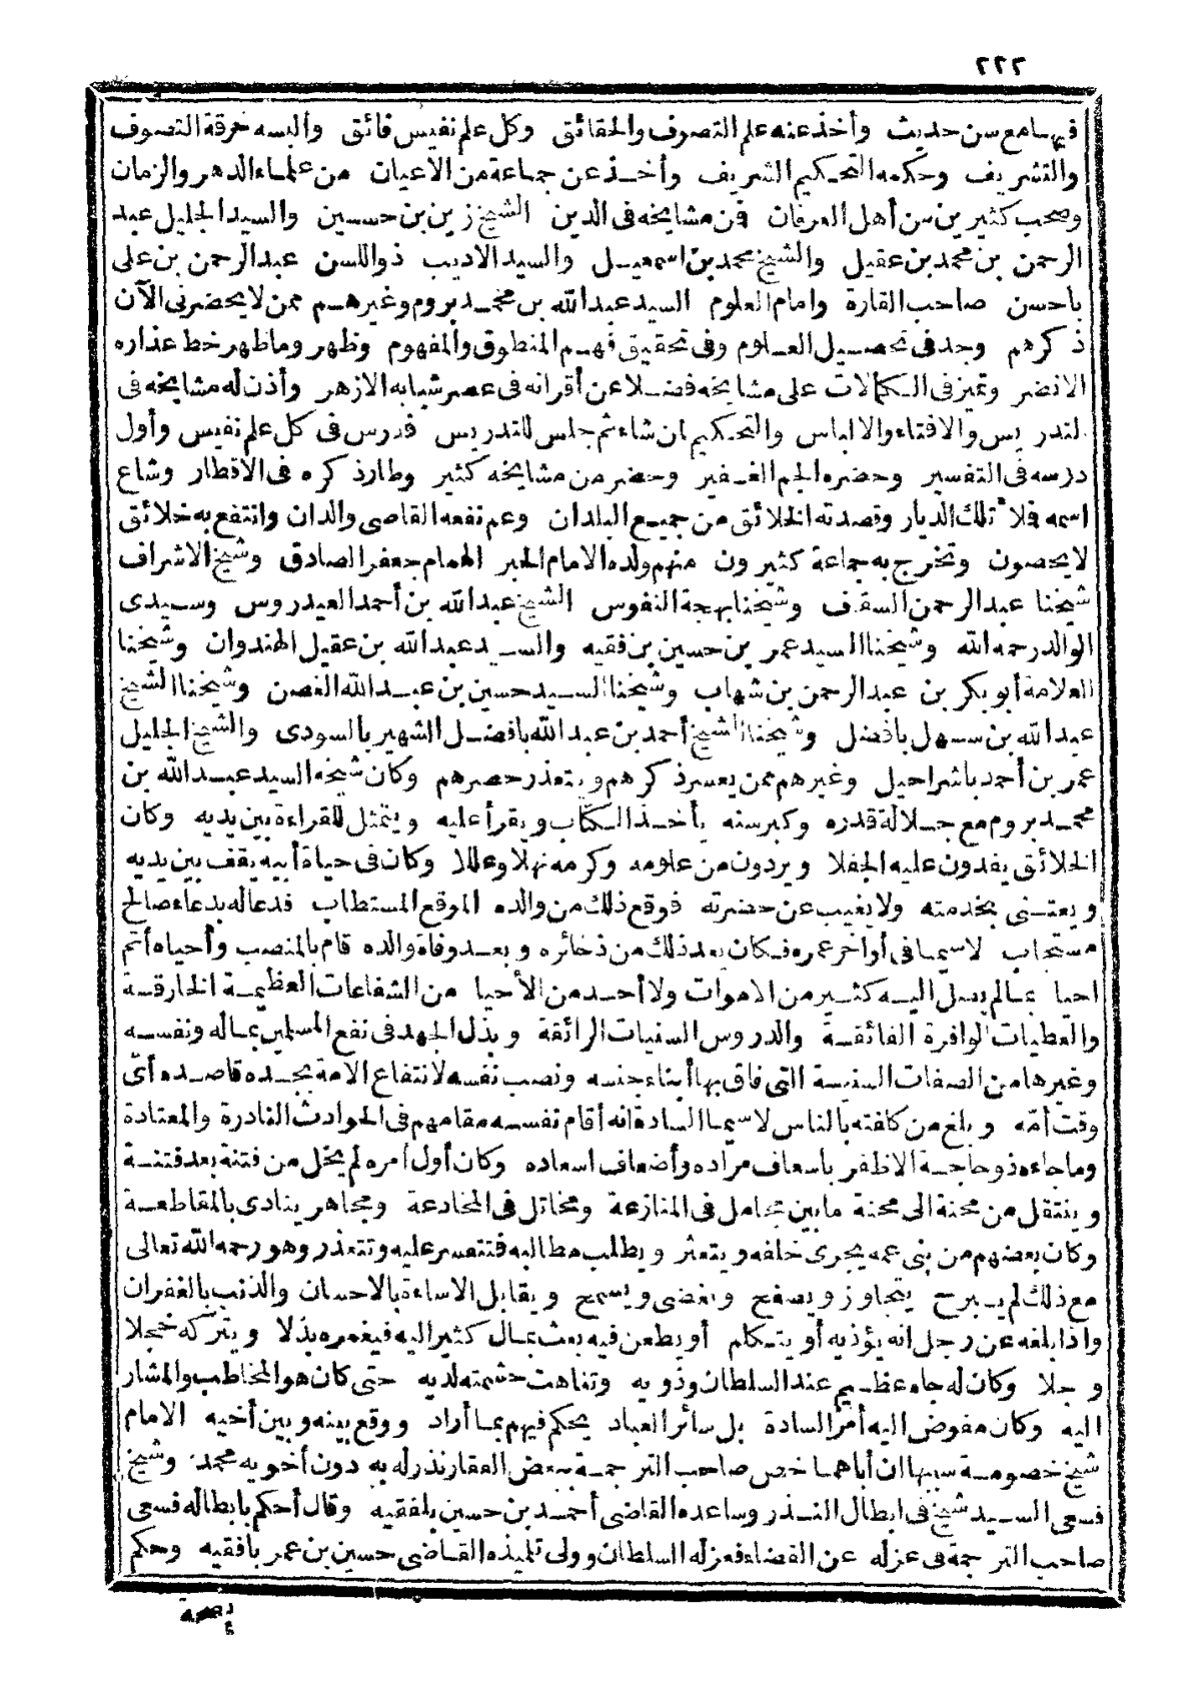 ٢٢٢
فيها مع سن حديث وأخذ عنه علم التصوف والحقائق وكل علم نفيس فائق وألبسه خرقة التصوف
والتشريف وحكمه التحكيم الشريف وأخذ عن جماعة من الاعيان من علماء الدهر والزمان
وصحب كثير ين من أهل العرفان فمن مشايخه فى الدين الشيخ زين بن حسين والسيد الجليل عبد
الرحمن بن محمد بن عقيل والشيخ محمد بن اسمعيل والسيد الاديب ذو اللسن عبد الرحمن بن على
باحسن صاحب القارة وامام العلوم السيد عبد الله بن محمد بروم وغيرهم ممن لا يحضرنى الآن
ذكرهم وجد فى تحصيل العلوم وفى تحقيق فهم المنطوق والمفهوم وظهر وما ظهر خط عذاره
الانضر وتميز فى الكمالات على مشايخه فضلا عن أقرانه فى عصر شبابه الازهر وأذن له مشايخه فى
لتدريس والافتاء والالباس والتحكيم ان شاء ثم جلس للتدريس فدرس فى كل علم نفيس وأول
درسه فى التفسير وحضره الجم الغفير وحضر من مشايخه كثير وطار ذكره فى الاقطار وشاع
اسمه فملأ تلك الديار وقصدته الخلائق من جميع البلدان وعم نفعه القاصى والدان وانتفع به خلائق
لا يحصون وتخرج به جماعة كثيرون منهم ولده الامام الحبر الهمام جعفر الصادق وشيخ الاشراف
شيخنا عبد الرحمن السقاف وشيخنا بهجة النفوس الشيخ عبد الله بن أحمد العيدروس وسيدى
الوالد رحمه الله وشيخنا السيد عمر بن حسين بن فقيه والسيد عبد الله بن عقيل الهندوان وشيخنا
العلامة أبو بكر بن عبد الرحمن بن شهاب وشيخنا السيد حسين بن عبد الله الغصن وشيخنا الشيخ
عبد الله بن سهل بافضل وشيخنا الشيخ أحمد بن عبد الله بافضل الشهير بالسودى والشيخ الجليل
عمر بن أحمد باشراحيل وغيرهم ممن يعسر ذكرهم ويتعذر حصرهم وكان شيخه السيد عبد الله بن
محمد بروم مع جلالة قدره وكبر سنه يأخذ الكتاب ويقرأ عليه ويتمثل للقراءة بين يديه وكان
الخلائق يفدون عليه الجفلا ويردون من علومه وكرمه نهلا وعللا وكان فى حياة أبيه يقف بين يديه
ويعتنى بخدمته ولا يغيب عن حضرته فوقع ذلك من والده الموقع المستطاب فدعا له بدعاء صالح
مستجاب لا سيما فى أواخر عمره فكان يعد ذلك من ذخائره وبعد وفاة والده قام بالمنصب وأحياه أتم
احيا بما لم يصل اليه كثير من الاموات ولا أحد من الأحيا من الشفاعات العظيمة الخارقة
والعطيات الوافرة الفائقة والدروس السنيات الرائقة وبذل الجهد فى نفع المسلمين بماله ونفسه
وغيرها من الصفات السنيسة التى فاق بها أبناء جنسه ونصب نفسه لانتفاع الامة يجده قاصده أىّ
وقت أمّه وبلغ من كافته بالناس لا سيما السادة انه أقام نفسه مقامهم فى الحوادث النادرة والمعتادة
وما جاءه ذو حاجة الاظفر باسعاف مراده وأضعاف اسعاده وكان أول أمره لم يخل من فتنة بعد فتنة
وينتقل من محنة الى محنة ما بين تحامل فى المنازعة ومخاتل فى المخادعة ومجاهر ينادى بالمقاطعة
وكان بعضهم من بنى عمه يجرى خلفه ويتعثر ويطلب مطالبه فتتعسر عليه وتتعذر وهو رحمه الله تعالى
مع ذلك لم يبرح يتجاوز ويصفح ويغضى ويسمح ويقابل الاساءة بالاحسان والذنب بالغفران
واذا بلغه عن رجل انه يؤذيه أو يتكلم أو يطعن فيه بعث بمال كثير اليه فيغمره بذلا ويتركه خجلا
وجلا وكان له جاه عظيم عند السلطان وذويه وتناهت حشمته لديه حتى كان هو المخاطب والمشار
اليه وكان مفوض اليه أمر السادة بل سائر العباد يحكم فيهم بما أراد ووقع بينه وبين أخيه الامام
شيخ خصومة سببها ان أباهما خص صاحب الترجمة ببعض العقار نذر له به دون أخويه محمد وشيخ
فسعى السيد شيخ فى ابطال النذر وساعده القاضى أحمد بن حسين بلفقيه وقال أحكم بابطاله فسعى
صاحب الترجمة فى عزله عن القضاء فعزله السلطان وولى تلميذه القاضى حسين بن عمر بافقيه وحكم
بصحة